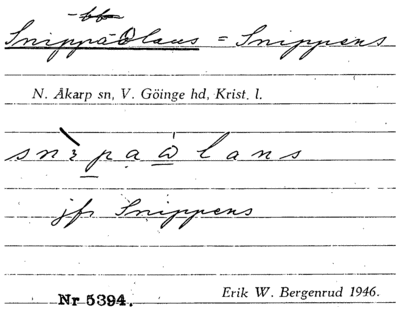 Snippåålans = Snippens
N. Åkarp sn, V. Göinge hd, Krist. l.
jfr Snippens
Nr 5394.
Erik W. Bergenrud 1946.